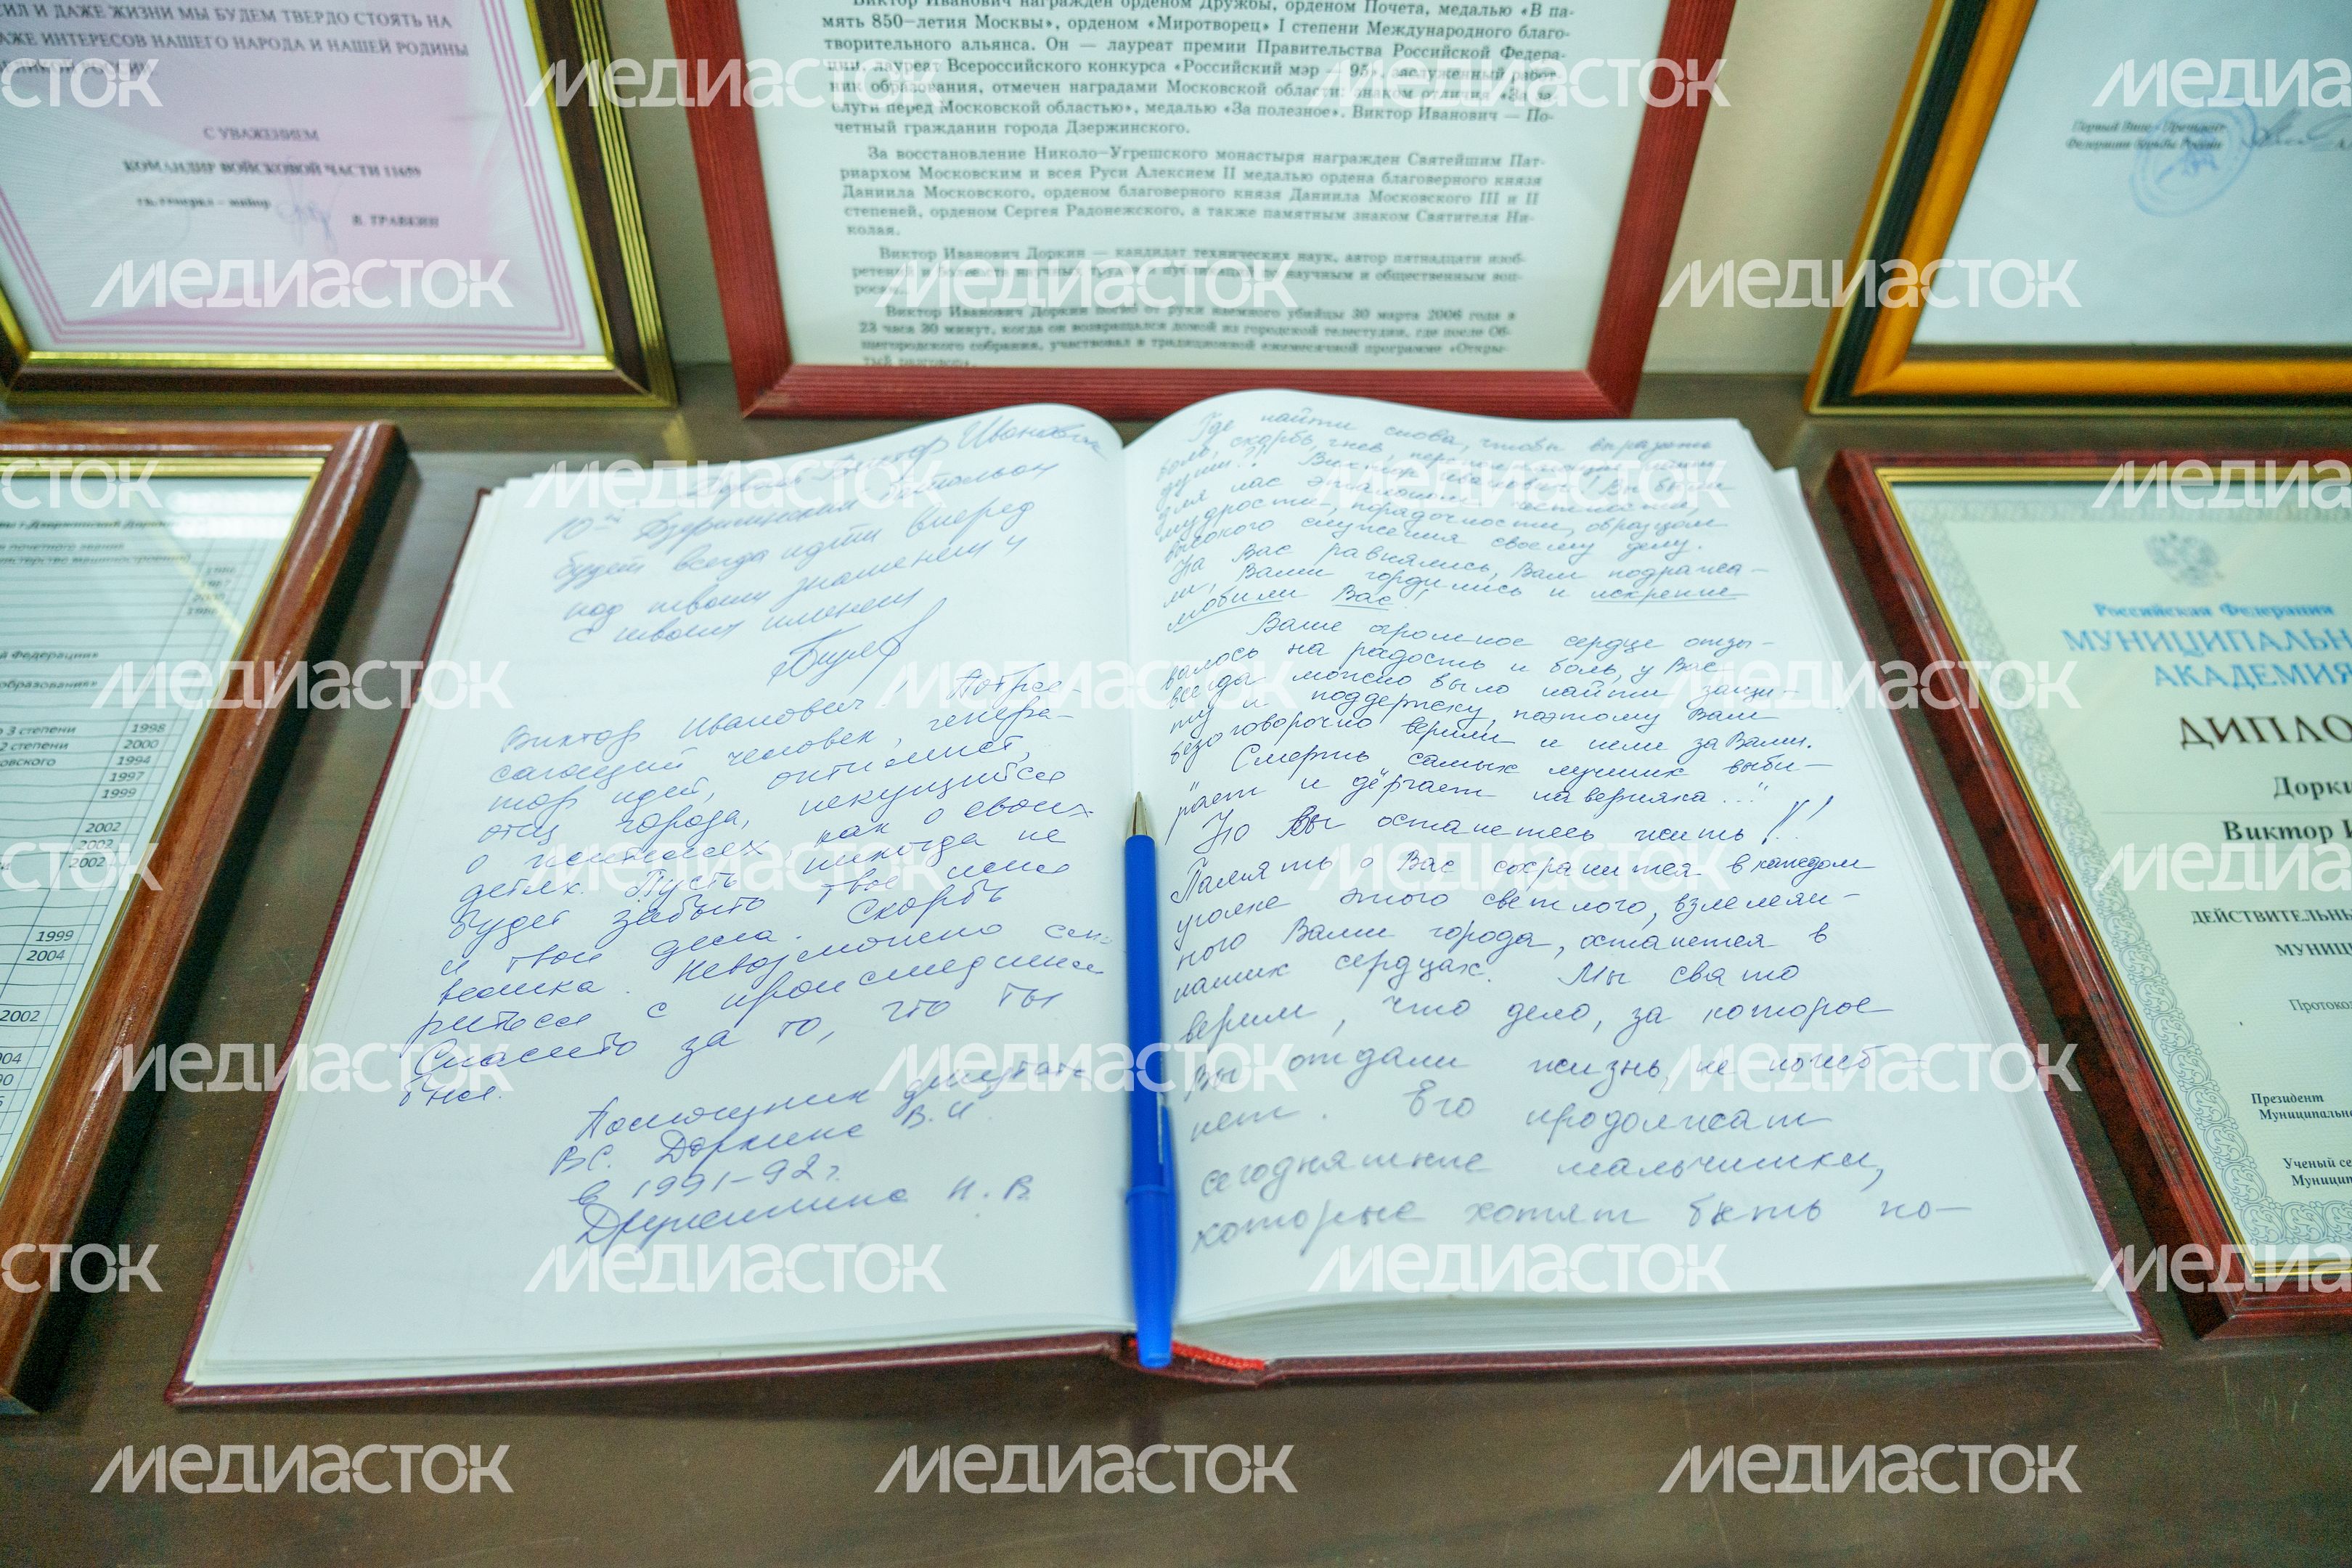 СИЛ И ДАЖЕ ЖИЗНИ МЫ БУДЕМ ТВЕРДО СТОЯТЬ НА
ИНТЕРЕСОВ НАШЕГО НАРОДА И НАШЕЙ РОДИНЫ
С УВАЖЕНИЕМ
КОМАНДИР ВОЙСКОВОЙ ЧАСТИ 11659
гв. генерал - майор
В. ТРАВКИН
Виктор Иванович награжден орденом Дружбы, орденом Почета, медалью «В па-
мять 850-летия Москвы», орденом «Миротворец» I степени Международного благо-
творительного альянса. Он — лауреат премии Правительства Российской Федера-
ции, лауреат Всероссийского конкурса «Российский мэр 95», заслуженный работ-
ник образования, отмечен наградами Московской области: знаком отличия «За за-
слуги перед Московской областью», медалью «За полезное». Виктор Иванович — По-
четный гражданин города Дзержинского.
За восстановление Николо-Угрешского монастыря награжден Святейшим Пат-
риархом Московским и всея Руси Алексием II медалью ордена благоверного князя
Даниила Московского, орденом благоверного князя Даниила Московского III и II
степеней, орденом Сергея Радонежского, а также памятным знаком Святителя Ни-
колая.
Виктор Иванович Доркин — кандидат технических наук, автор пятнадцати изоб-
научным и общественным воп-
росам.
Виктор Иванович Доркин погиб от руки наемного убийцы 30 марта 2006 года в
23 часа 30 минут, когда он возвращался домой из городской телестудии, где после Об-
щегородского собрания, участвовал в традиционной ежемесячной программе «Откры-
тый разговор».
Первый Вице - Президент
Федерации борьбы России
Виктор Иванович
будет всегда идти вперед
под твоим знаменем и
с твоим именем
Виктор Иванович! Потряса-
сающий человек, генера-
тор идей, оптимист,
отец города, пекущийся
о жителях, как о своих
детях. Пусть никогда не
будет забыто твое имя
и твои дела. Скорбь
велика. Невозможно сми-
риться с происшедшим
Спасибо за то, что ты
был.
Помощник депутата
ВС. Доркина В.И.
в 1991-92г.
Дружинина Н.В.
Где найти слова, чтобы выразить
боль, скорбь, гнев, переполняющие наши
души?! Виктор Иванович! Вы были
для нас эталоном честности,
мудрости, порядочности, образцом
высокого служения своему делу.
На Вас равнялись, Вам подража-
ли, Вами гордились и искренне
любили Вас!
Ваше огромное сердце отзы-
валось на радость и боль, у Вас
всегда можно было найти защи-
ту и поддержку, поэтому Вам
безоговорочно верили и шли за Вами.
"Смерть самых лучших выби-
рает и дёргает наверняка..."
Но Вы останетесь жить!!!
Память о Вас сохранится в каждом
уголке этого светлого, взлелеян-
ного Вами города, останется в
наших сердцах. Мы свято
верим, что дело, за которое
Вы отдали жизнь, не погиб-
нет. Его продолжат
сегодняшние мальчишки,
которые хотят быть по-
почетного звания
образования»
3 степени 1998
2 степени 2000
1994
1997
1999
2002
2002
2002
1999
2004
2002
Российская Федерация
МУНИЦИПАЛЬН
АКАДЕМИЯ
ДИПЛО
Дорки
Виктор И
ДЕЙСТВИТЕЛЬНЫ
МУНИЦ
Протокол
Президент
Муниципальн
Ученый се
Муницип
МЕДИАСТОК